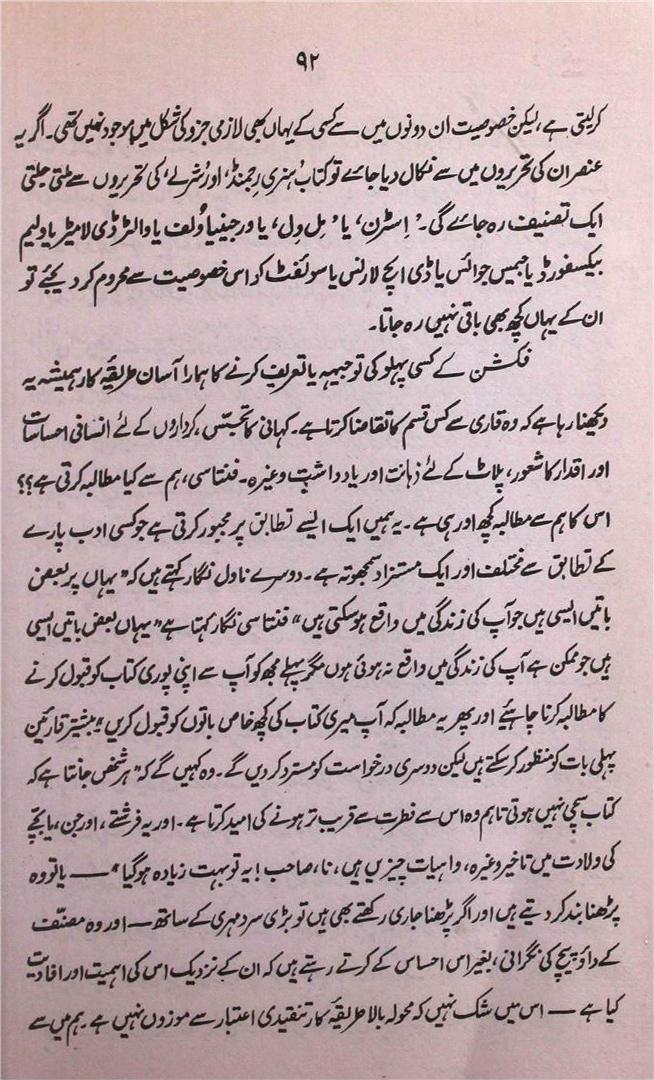 ۹۲
کرلیتی ہے، لیکن خصوصیت ان دونوں میں سے کسی کے یہاں بھی لازمی جزو کی شکل میں موجود نہیں تھی۔ اگر یہ
عنصر ان کی تحریروں میں سے نکال دیا جائے تو کتاب 'ہنری رچمنڈ' اور 'شرلے' کی تحریروں سے ملتی جلتی
ایک تصنیف رہ جائے گی۔ 'اِسٹرن، یا' مِل وِل، یا ورجینیا وُلف یا والٹر ڈی لا میٹر یا ولیم
بیکسفورڈ یا جیمس جوائس یا ڈی ایچ لارنس یا سوئفٹ کو اس خصوصیت سے محروم کر دیجئے تو
ان کے یہاں کچھ بھی باقی نہیں رہ جاتا۔
فکشن کے کسی پہلو کی توجیہہ یا تعریف کرنے کا ہمارا آسان طریقۂ کار ہمیشہ یہ
دیکھنا رہا ہے کہ وہ قاری سے کس قسم کا تقاضا کرتا ہے۔ کہانی کا تجسّس، کرداروں کے لئے انسانی احساسات
اور اقدار کا شعور، پلاٹ کے لئے ذہانت اور یادداشت وغیرہ۔ فنتاسی، ہم سے کیا مطالبہ کرتی ہے؟؟
اس کا ہم سے مطالبہ کچھ اور ہی ہے۔ یہ ہمیں ایک ایسے تطابق پر مجبور کرتی ہے جو کسی ادب پارے
کے تطابق سے مختلف اور ایک مستزاد سمجھوتہ ہے۔ دوسرے ناول نگار کہتے ہیں کہ "یہاں پر بعض
باتیں ایسی ہیں جو آپ کی زندگی میں واقع ہوسکتی ہیں" فنتاسی نگار کہتا ہے "یہاں بعض باتیں ایسی
ہیں جو ممکن ہے آپ کی زندگی میں واقع نہ ہوئی ہوں مگر پہلے مجھ کو آپ سے اپنی پوری کتاب کو قبول کرنے
کا مطالبہ کرنا چاہیئے اور پھر یہ مطالبہ کہ آپ میری کتاب کی کچھ خاص باتوں کو قبول کریں" بیشتر قارئین
پہلی بات کو منظور کرسکتے ہیں لیکن دوسری درخواست کو مسترد کردیں گے۔ وہ کہیں گے کہ "ہر شخص جانتا ہے کہ
کتاب سچی نہیں ہوتی تاہم وہ اس سے فطرت سے قریب تر ہونے کی امید کرتا ہے۔ اور یہ فرشتے، اور جن، یا بچّے
کی ولادت میں تاخیر وغیرہ، واہیات چیزیں ہیں، نا، صاحب! یہ تو بہت زیادہ ہوگیا" — یا تو وہ
پڑھنا بند کر دیتے ہیں اور اگر پڑھنا جاری رکھتے بھی ہیں تو بڑی سرد مہری کے ساتھ — اور وہ مصنّف
کے داؤ پیچ کی نگرانی، بغیر اس احساس کے کرتے رہتے ہیں کہ ان کے نزدیک اس کی اہمیت اور افادیت
کیا ہے — اس میں شک نہیں کہ محولہ بالا طریقۂ کار تنقیدی اعتبار سے موزوں نہیں ہے۔ ہم میں سے